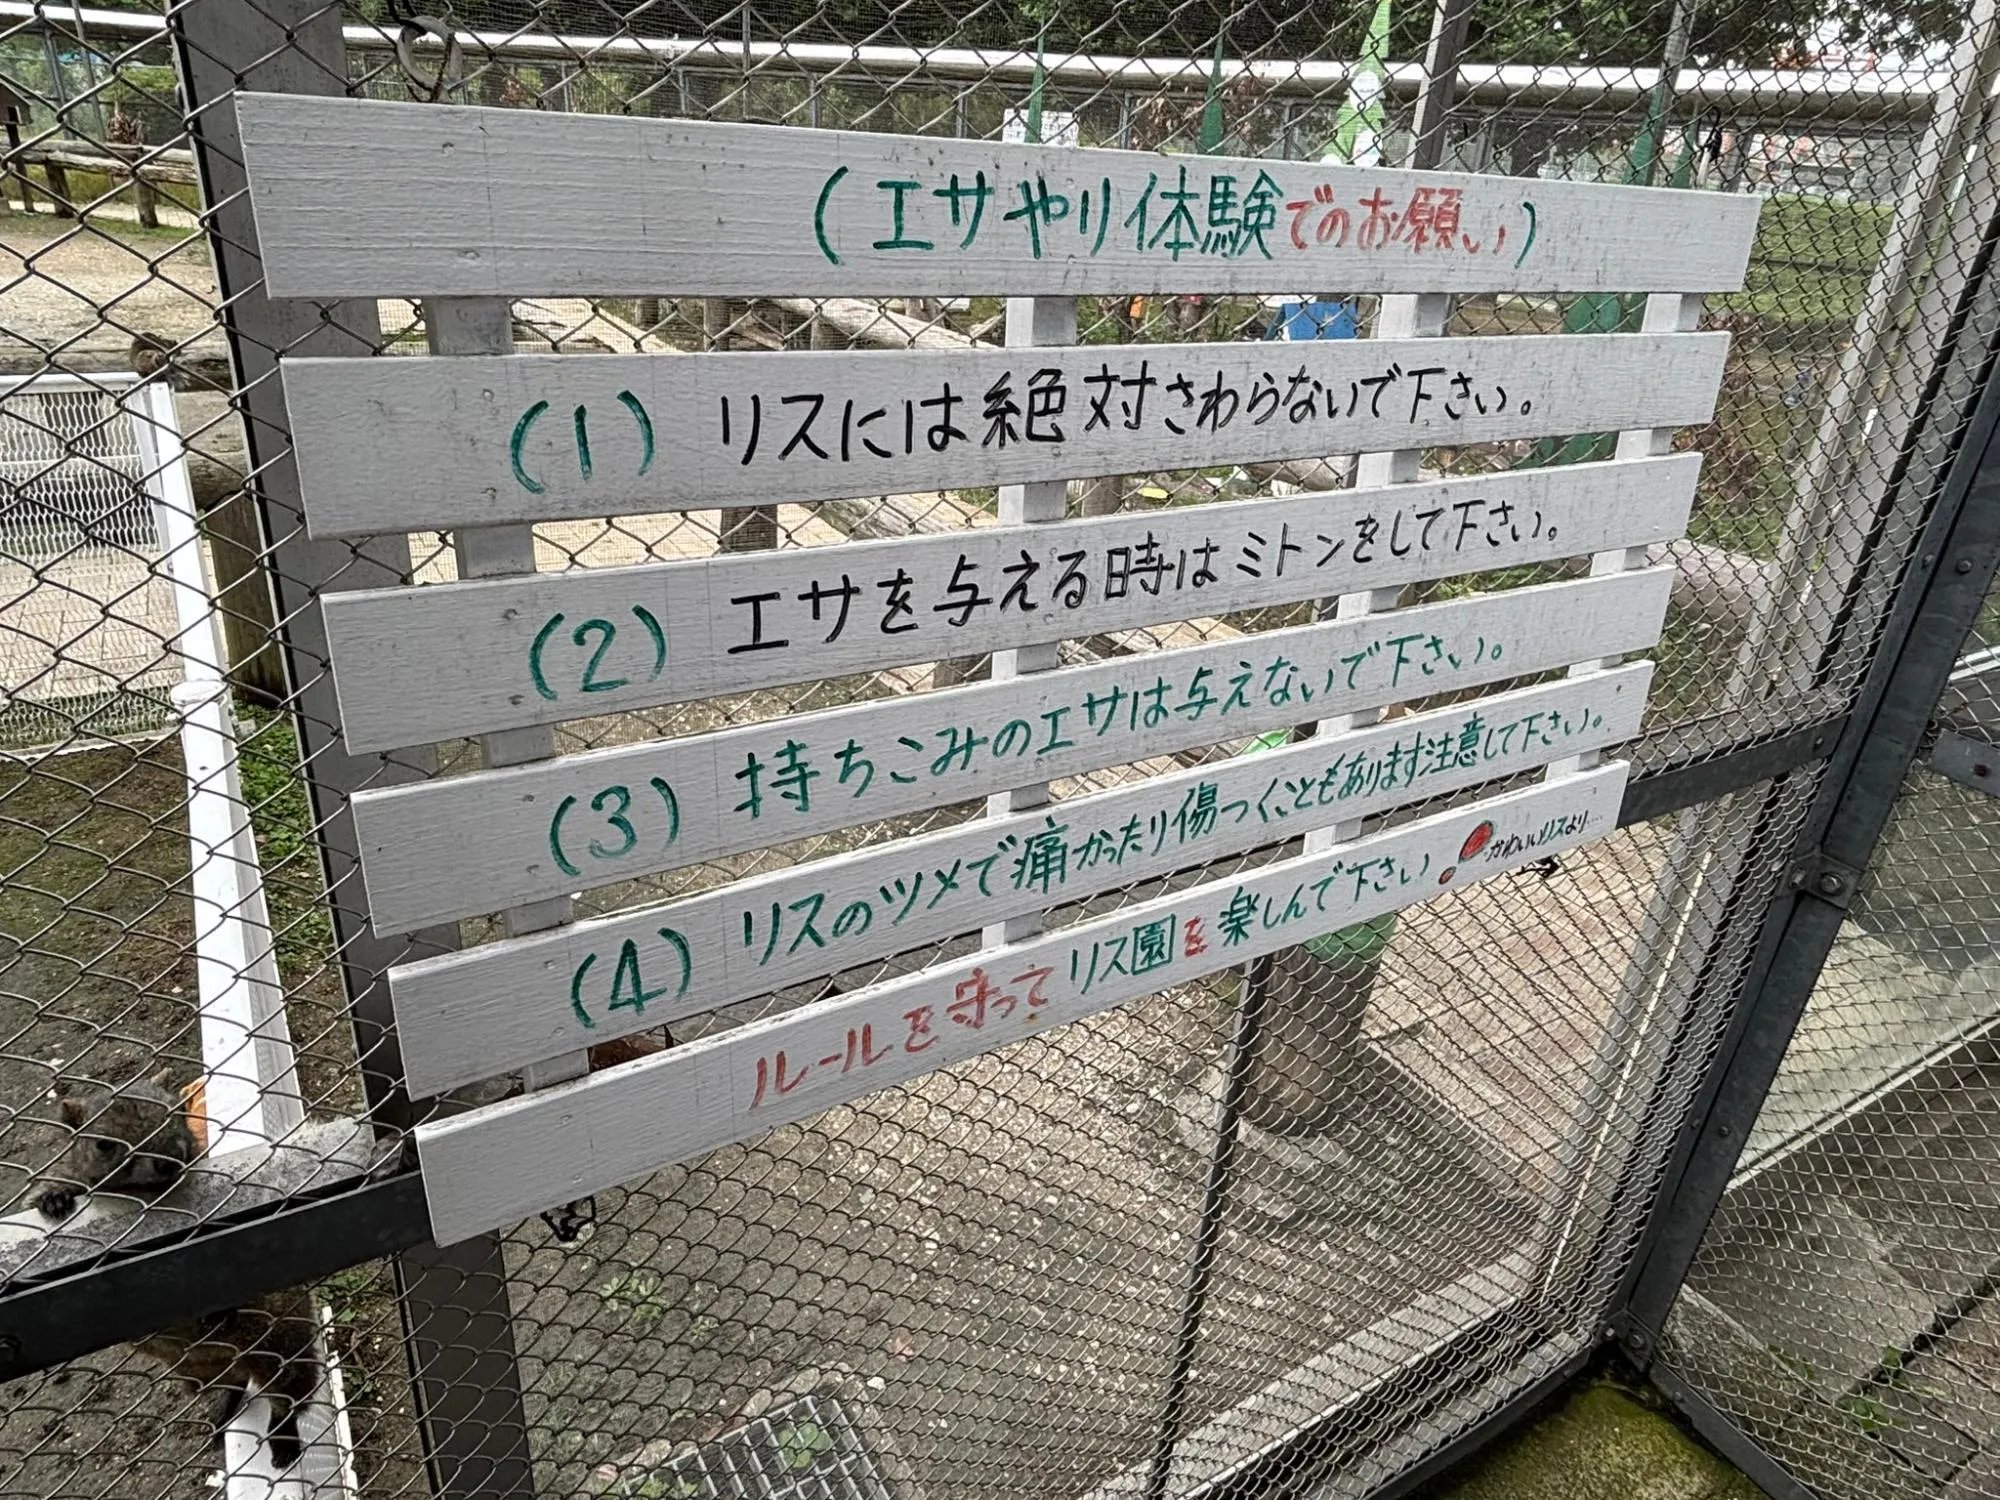 (エサやり体験でのお願い)
(1) リスには絶対さわらないで下さい。
(2) エサを与える時はミトンをして下さい。
(3) 持ちこみのエサは与えないで下さい。
(4) リスのツメで痛かったり傷つくこともあります注意して下さい。
ルールを守ってリス園を楽しんで下さい! かわいいリスより....